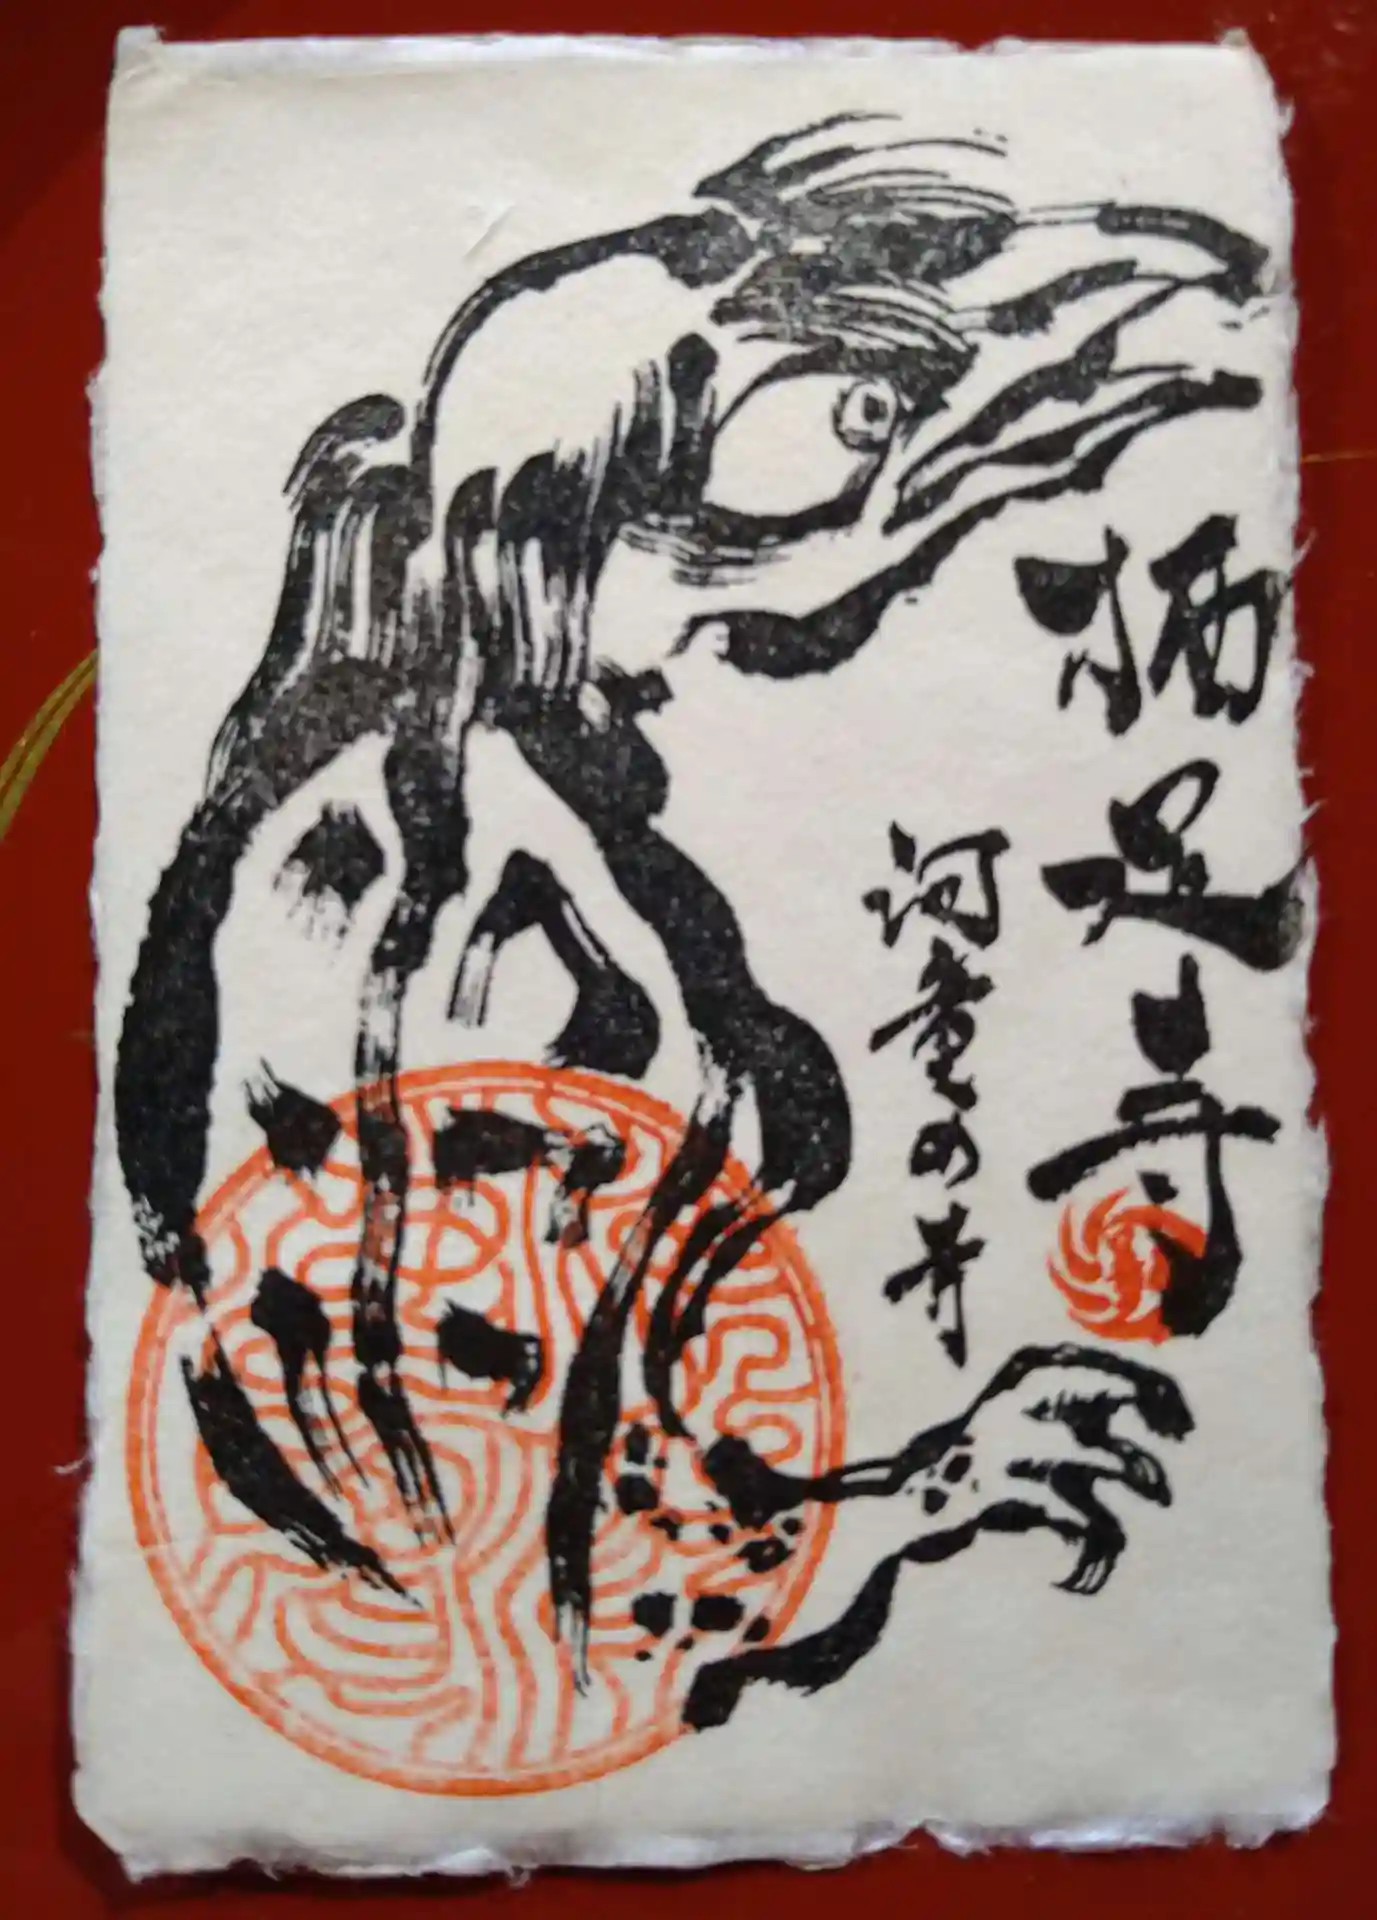 栖足寺
河童の寺